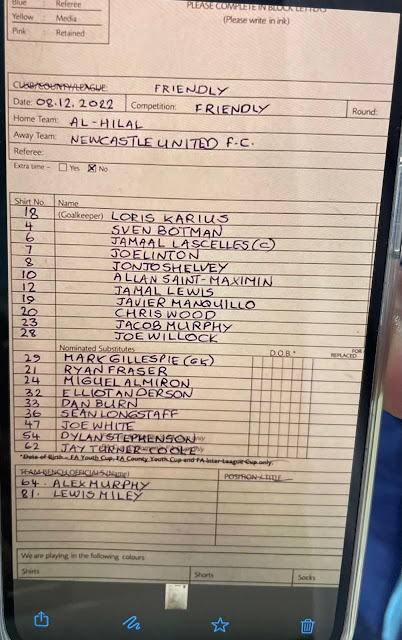 Blue : Referee
Yellow : Media
Pink : Retained
PLEASE COMPLETE IN BLOCK LETTERS
(Please write in ink)
CLUB/COUNTY/LEAGUE FRIENDLY
Date: 08.12.2022 Competition: FRIENDLY Round:
Home Team: AL-HILAL
Away Team: NEWCASTLE UNITED F.C.
Referee:
Extra time – Yes No
Shirt No. Name
18 (Goalkeeper) LORIS KARIUS
4 SVEN BOTMAN
6 JAMAAL LASCELLES (C)
7 JOELINTON
8 JONJO SHELVEY
10 ALLAN SAINT-MAXIMIN
12 JAMAL LEWIS
19 JAVIER MANQUILLO
20 CHRIS WOOD
23 JACOB MURPHY
28 JOE WILLOCK
Nominated Substitutes D.O.B.* FOR REPLACED
29 MARK GILLESPIE (GK)
21 RYAN FRASER
24 MIGUEL ALMIRON
32 ELLIOT ANDERSON
33 DAN BURN
36 SEAN LONGSTAFF
47 JOE WHITE
54 DYLAN STEPHENSON
62 JAY TURNER-COOKE
*Date of Birth – FA Youth Cup, FA County Youth Cup and FA Inter League Cup only.
TEAM BENCH OFFICIALS (Name) POSITION / TITLE
64. ALEX MURPHY
81. LEWIS MILEY
We are playing in the following colours
Shirts Shorts Socks